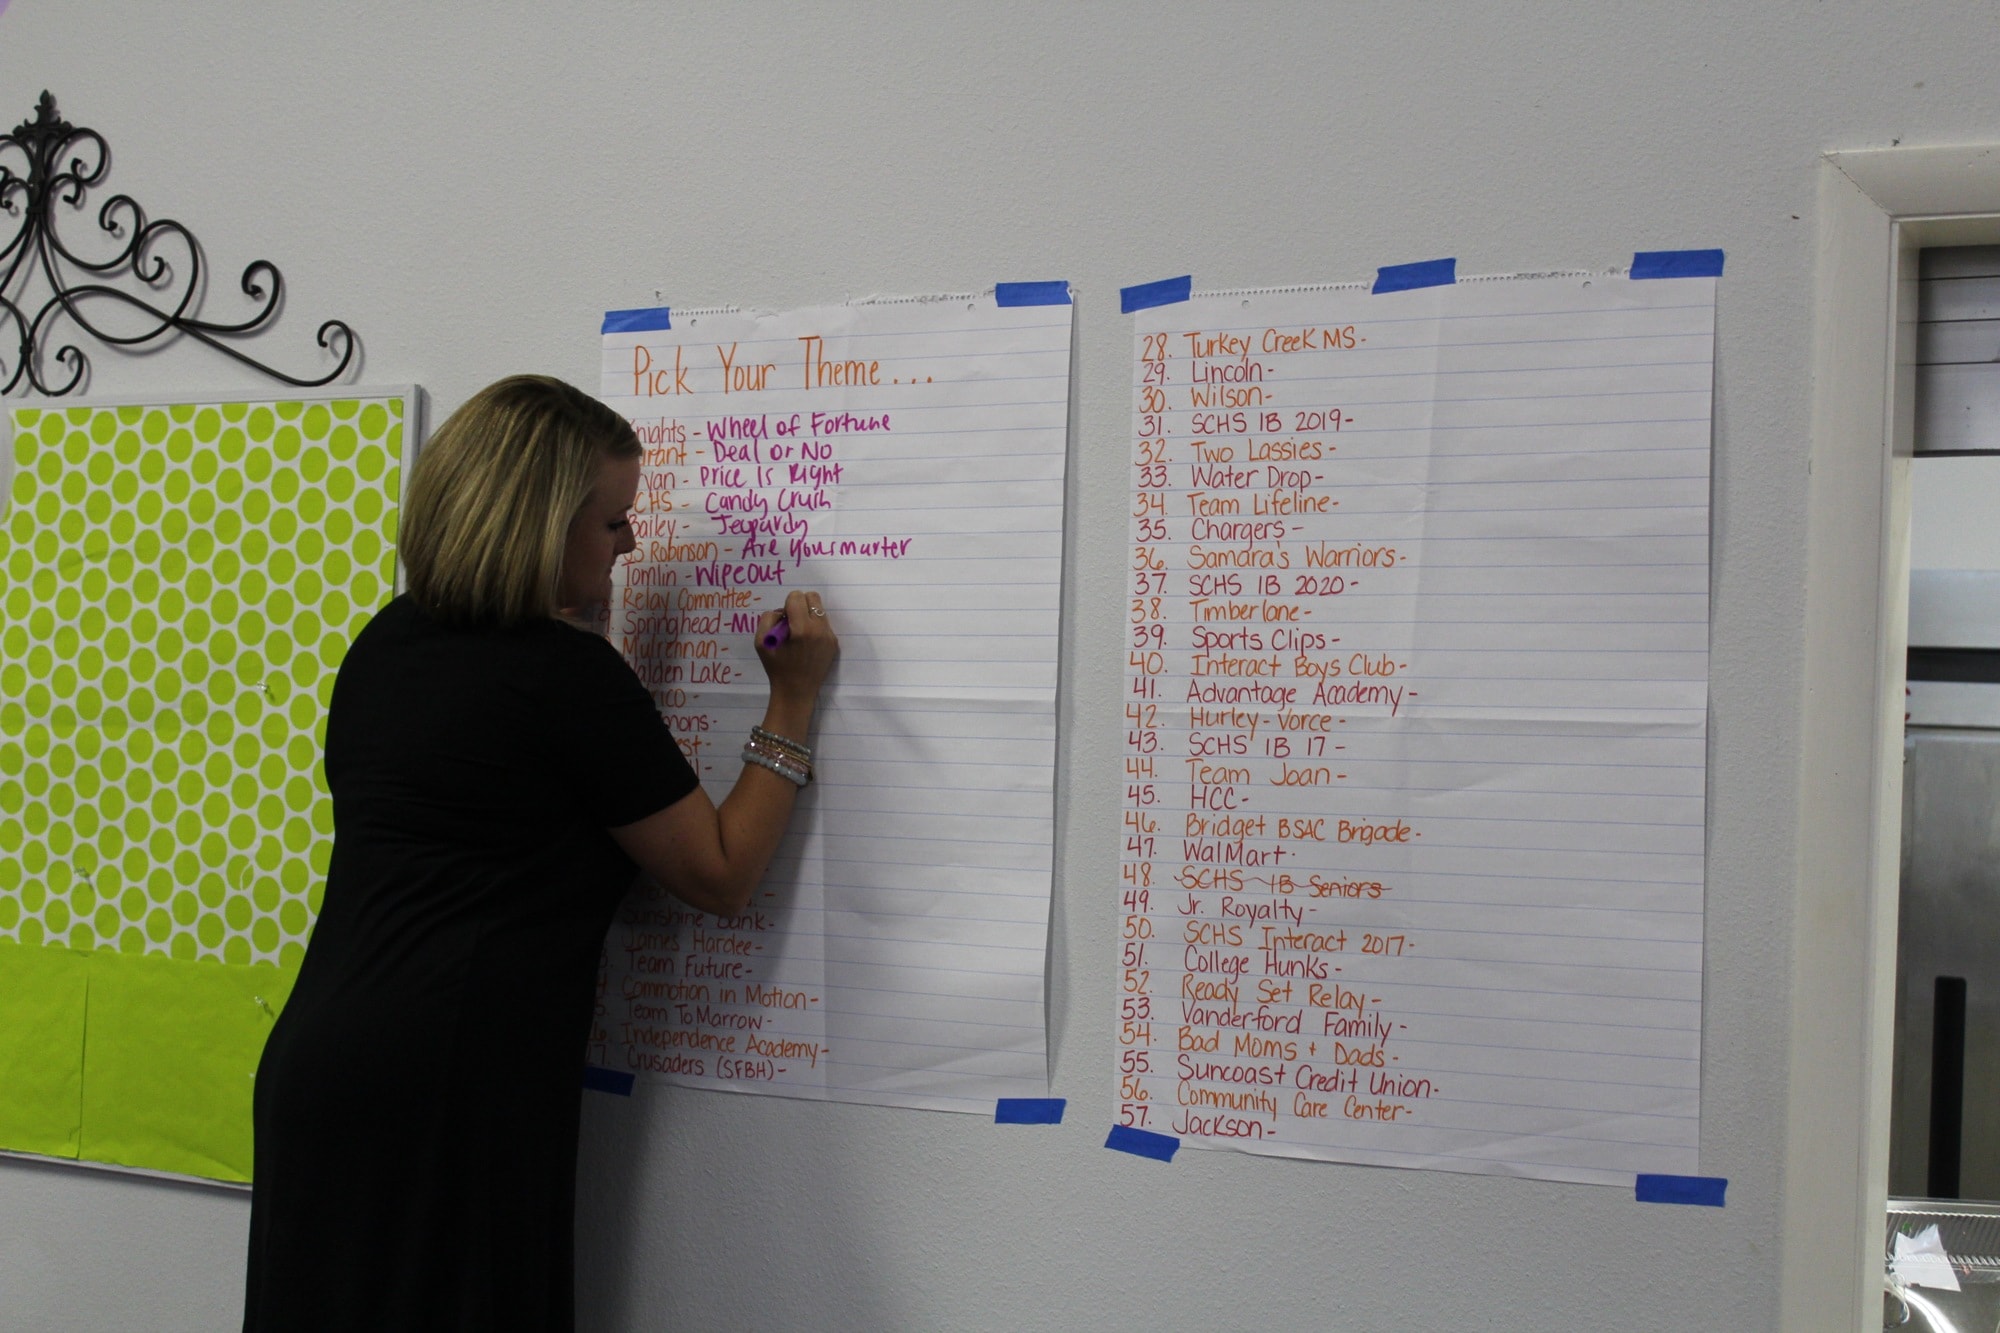 Pick Your Theme...
nights - Wheel of Fortune
rant - Deal or No
van - Price Is Right
CHS - Candy Crush
Bailey - Jeopardy
JS Robinson - Are you smarter
Tomlin - Wipeout
Relay Committee-
9. Springhead - Mi
Mulrennan-
alden Lake-
rico-
mons-
est-
l-
Sunshine Bank-
James Hardee-
3. Team Future-
4. Commotion in Motion-
5. Team ToMarrow-
6. Independence Academy-
27. Crusaders (SFBH)-
28. Turkey Creek MS-
29. Lincoln-
30. Wilson-
31. SCHS IB 2019-
32. Two Lassies-
33. Water Drop-
34. Team Lifeline-
35. Chargers-
36. Samara's Warriors-
37. SCHS IB 2020-
38. Timberlane-
39. Sports Clips-
40. Interact Boys Club-
41. Advantage Academy-
42. Hurley-Vorce-
43. SCHS IB 17-
44. Team Joan-
45. HCC-
46. Bridget BSAC Brigade-
47. WalMart-
48. SCHS IB Seniors
49. Jr. Royalty-
50. SCHS Interact 2017-
51. College Hunks-
52. Ready Set Relay-
53. Vanderford Family-
54. Bad Moms + Dads-
55. Suncoast Credit Union-
56. Community Care Center-
57. Jackson-